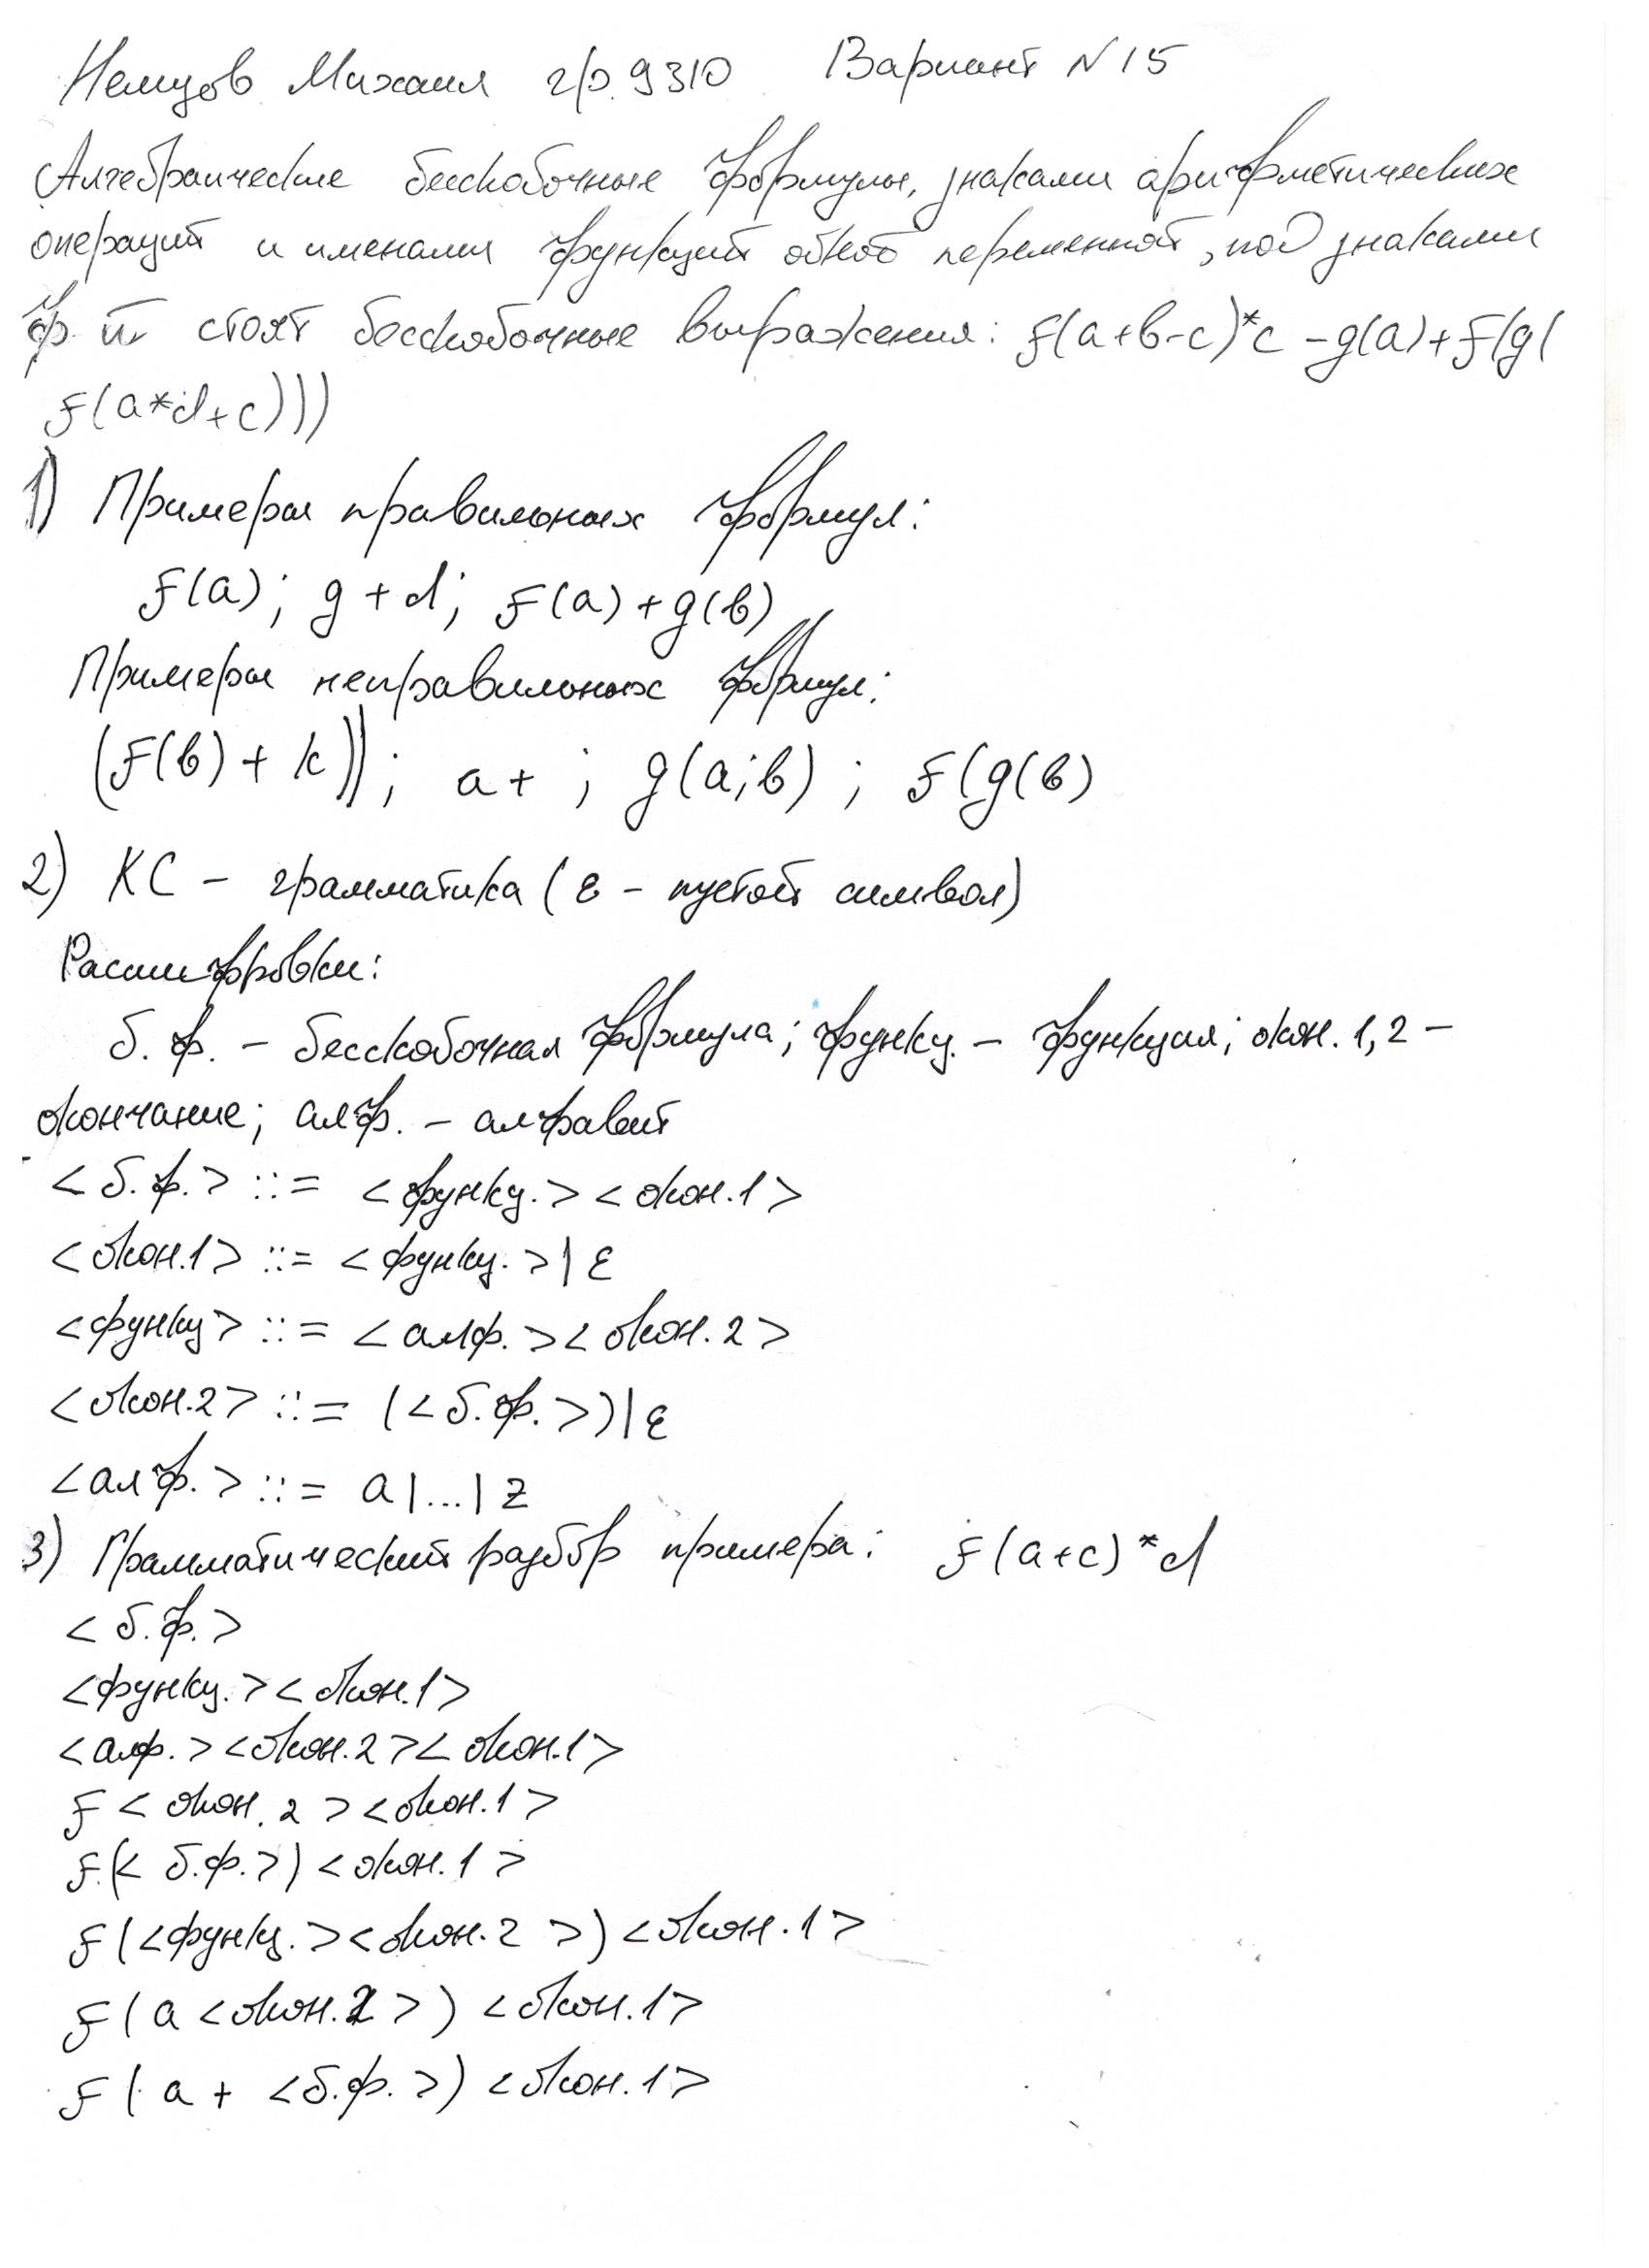 Немцов Михаил гр. 9310 Вариант N 15
Алгебраические бесскобочные формулы, знаками арифметических
операций и именами функций одной переменной, под знаками
ф. й стоят бесскобочные выражения: f(a+b-c)*c -g(a)+f(g(
f(a*d+c)))
1) Примеры правильных формул:
f(a); g+d; f(a)+g(b)
Примеры неправильных формул:
(f(b)+k)); a+ ; g(a;b) ; f(g(b)
2) КС - грамматика (ε - пустой символ)
Расшифровки:
б. ф. - бесскобочная формула; функц. - функция; окон. 1,2 -
окончание; алф. - алфавит
<б.ф.> ::= <функц.><окон.1>
<окон.1> ::= <функц.>|ε
<функц> ::= <алф.><окон.2>
<окон.2> ::= (<б.ф.>)|ε
<алф.> ::= a|...|z
3) Грамматический разбор примера: f(a+c)*d
<б.ф.>
<функц.><окон.1>
<алф.><окон.2><окон.1>
f<окон.2><окон.1>
f(<б.ф.>)<окон.1>
f(<функц.><окон.2>)<окон.1>
f(a<окон.2>)<окон.1>
f(a + <б.ф.>)<окон.1>